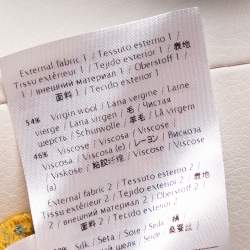 External fabric 1 / Tessuto esterno 1 /
Tissu extérieur 1 / Tejido exterior 1 / 表地
1 / внешний материал 1 / Oberstoff 1 /
面料 1 / Tecido exterior 1
54% Virgin wool / Lana vergine / Laine
vierge / Lana virgen / 毛 / Чистая
шерсть / Schurwolle / 羊毛 / Lã virgem
46% Viscose / Viscosa / Viscose /
Viscosa / Viscosa (e) / レーヨン / Вискоза
/ Viskose / 粘胶纤维 / Viscose
(a)
External fabric 2 / Tessuto esterno 2 /
Tissu extérieur 2 / Tejido exterior 2 / 表地
2 / внешний материал 2 / Oberstoff 2 /
面料 2 / Tecido exterior 2
Silk / Seta / Soie / Seda / 絹
/ Seide / 桑蚕丝